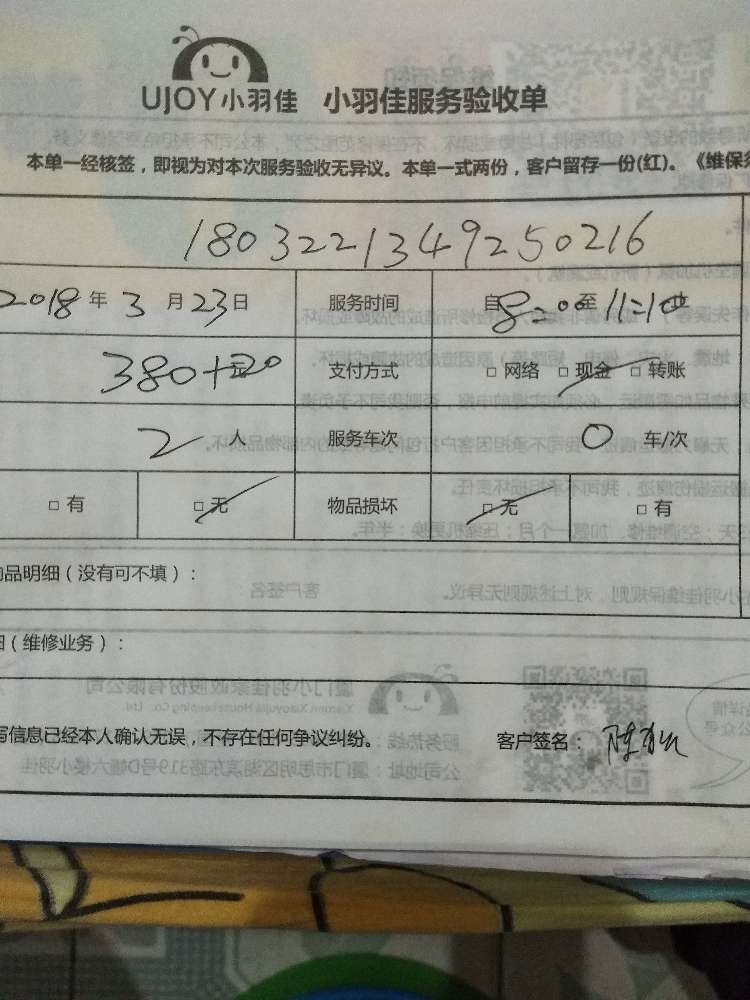 UJOY小羽佳 小羽佳服务验收单
本单一经核签，即视为对本次服务验收无异议。本单一式两份，客户留存一份(红)。《维保
1803221349250216
2018年3月23日 服务时间 自8:00至11:10止
380+20元 支付方式 □网络 □现金 □转账
2人 服务车次 0车/次
□有 □无 物品损坏 □无 □有
品明细（没有可不填）：
（维修业务）：
写信息已经本人确认无误，不存在任何争议纠纷。 客户签名：陈